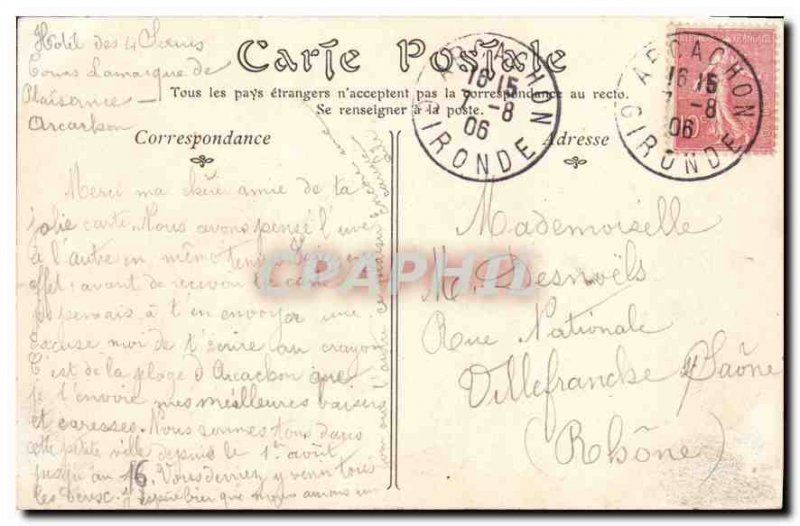 Hotel des 4 Sœurs
Cours Lamarque de
Plaisance —
Arcachon
Carte Postale
Tous les pays étrangers n'acceptent pas la correspondance au recto.
Se renseigner à la poste.
Correspondance
Merci ma chère amie de ta
jolie carte. Nous avons pensé l'une
à l'autre en même temps
effet; avant de recevoir ta carte
je pensais à t'en envoyer une.
Excuse moi de t'écrire au crayon
C'est de la plage d'Arcachon que
je t'envoie mes meilleures baisers
et caresses. Nous sommes tous dans
cette petite ville depuis le 1er août
jusqu'au 16. Vous devriez y venir
J'espère bien que nous aurons
Adresse
Mademoiselle
M. Desnoëls
Rue Nationale
Villefranche s/ Saône
(Rhône)
ARCACHON
16 15
7 -8
06
GIRONDE
ARCACHON
16 15
7 -8
06
GIRONDE
CPAPHIL